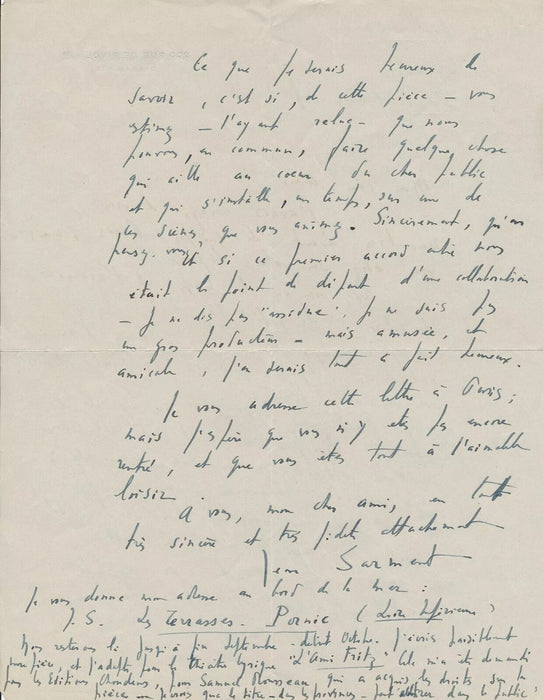 Ce que je serais heureux de
savoir, c'est si, de cette pièce – vous
estimez – l'ayant relue – que nous
pouvons, en commun, faire quelque chose
qui aille au coeur du cher public
et qui s'installe, un temps, sur une de
les scènes que vous animez. Sincèrement, qu'en
pensez-vous?
Et si ce premier accord entre nous
était le point de départ d'une collaboration
– je ne dis pas "assidue", je ne suis pas
un gros producteur – mais amusée, et
amicale, j'en serais tout à fait heureux.
Je vous adresse cette lettre à Paris;
mais j'espère que vous n'y etes pas encore
rentré, et que vous êtes tout à l'aimable
loisir.
A vous, mon cher ami, en toute
très sincère et très fidèle attachement
Jean Sarment
Je vous donne mon adresse au bord de la mer:
J.S. Les Terrasses. Pornic (Loire Inférieure)
Nous resterons là jusqu'à fin septembre – début Octobre. J'écris paisiblement
une pièce, et j'adapte, pour le théâtre lyrique "L'Ami Fritz" Cela m'a été demandé
par les Editions Choudens, pour Samuel Rousseau qui a acquis les droits sur la
pièce – que le titre – dans les provinces – peut attirer dans le public!